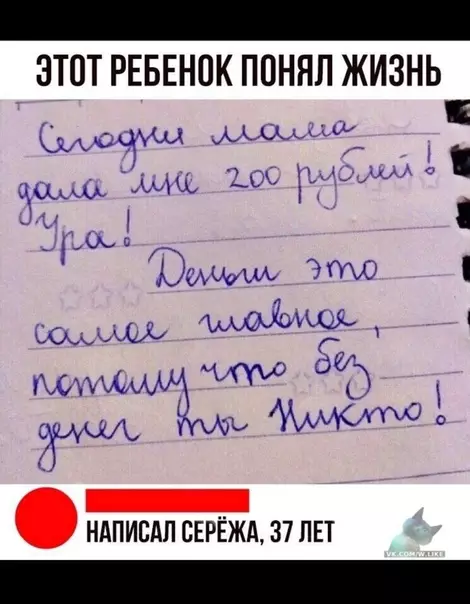 ЭТОТ РЕБЕНОК ПОНЯЛ ЖИЗНЬ
Сегодня мама
дала мне 200 рублей!
Ура!
Деньги это
самое главное,
потому что без
денег ты Никто!
НАПИСАЛ СЕРЁЖА, 37 ЛЕТ
VK.COM/W.LIKE